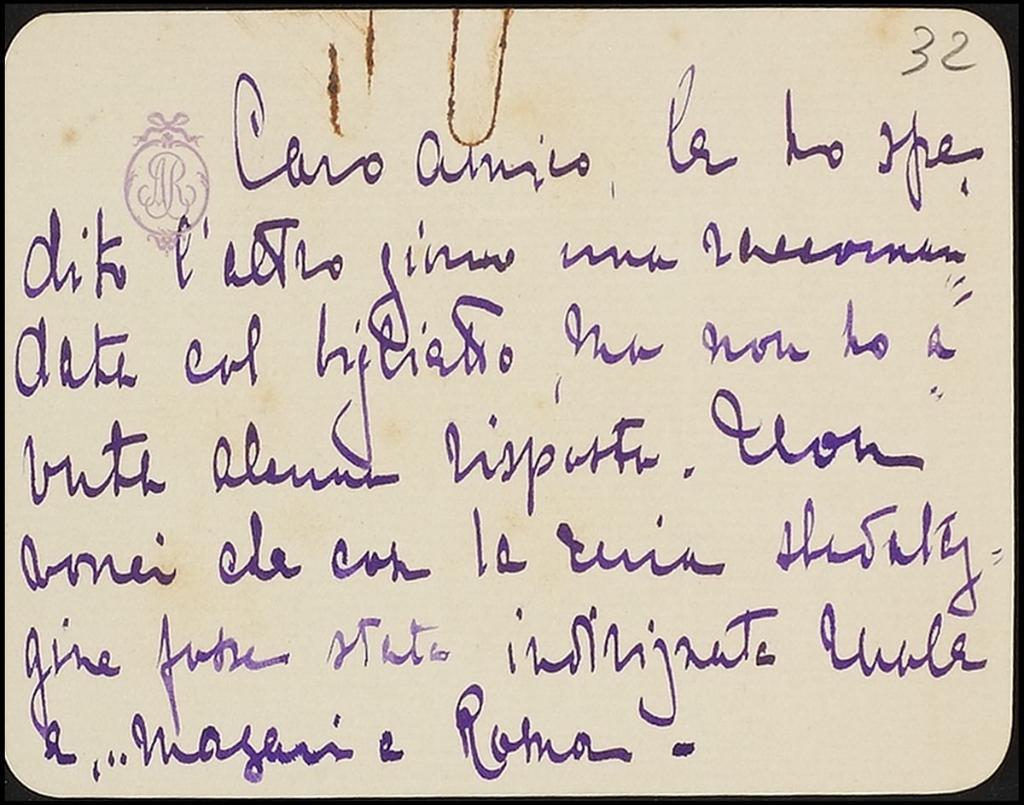 32
Caro amico, le ho spe-
dito l'altro giorno una raccoman-
data col biglietto, ma non ho a-
vuta alcuna risposta. Non
vorrei che con la mia sbadatag-
gine fosse stata indirizzata male
a... magari a Roma -